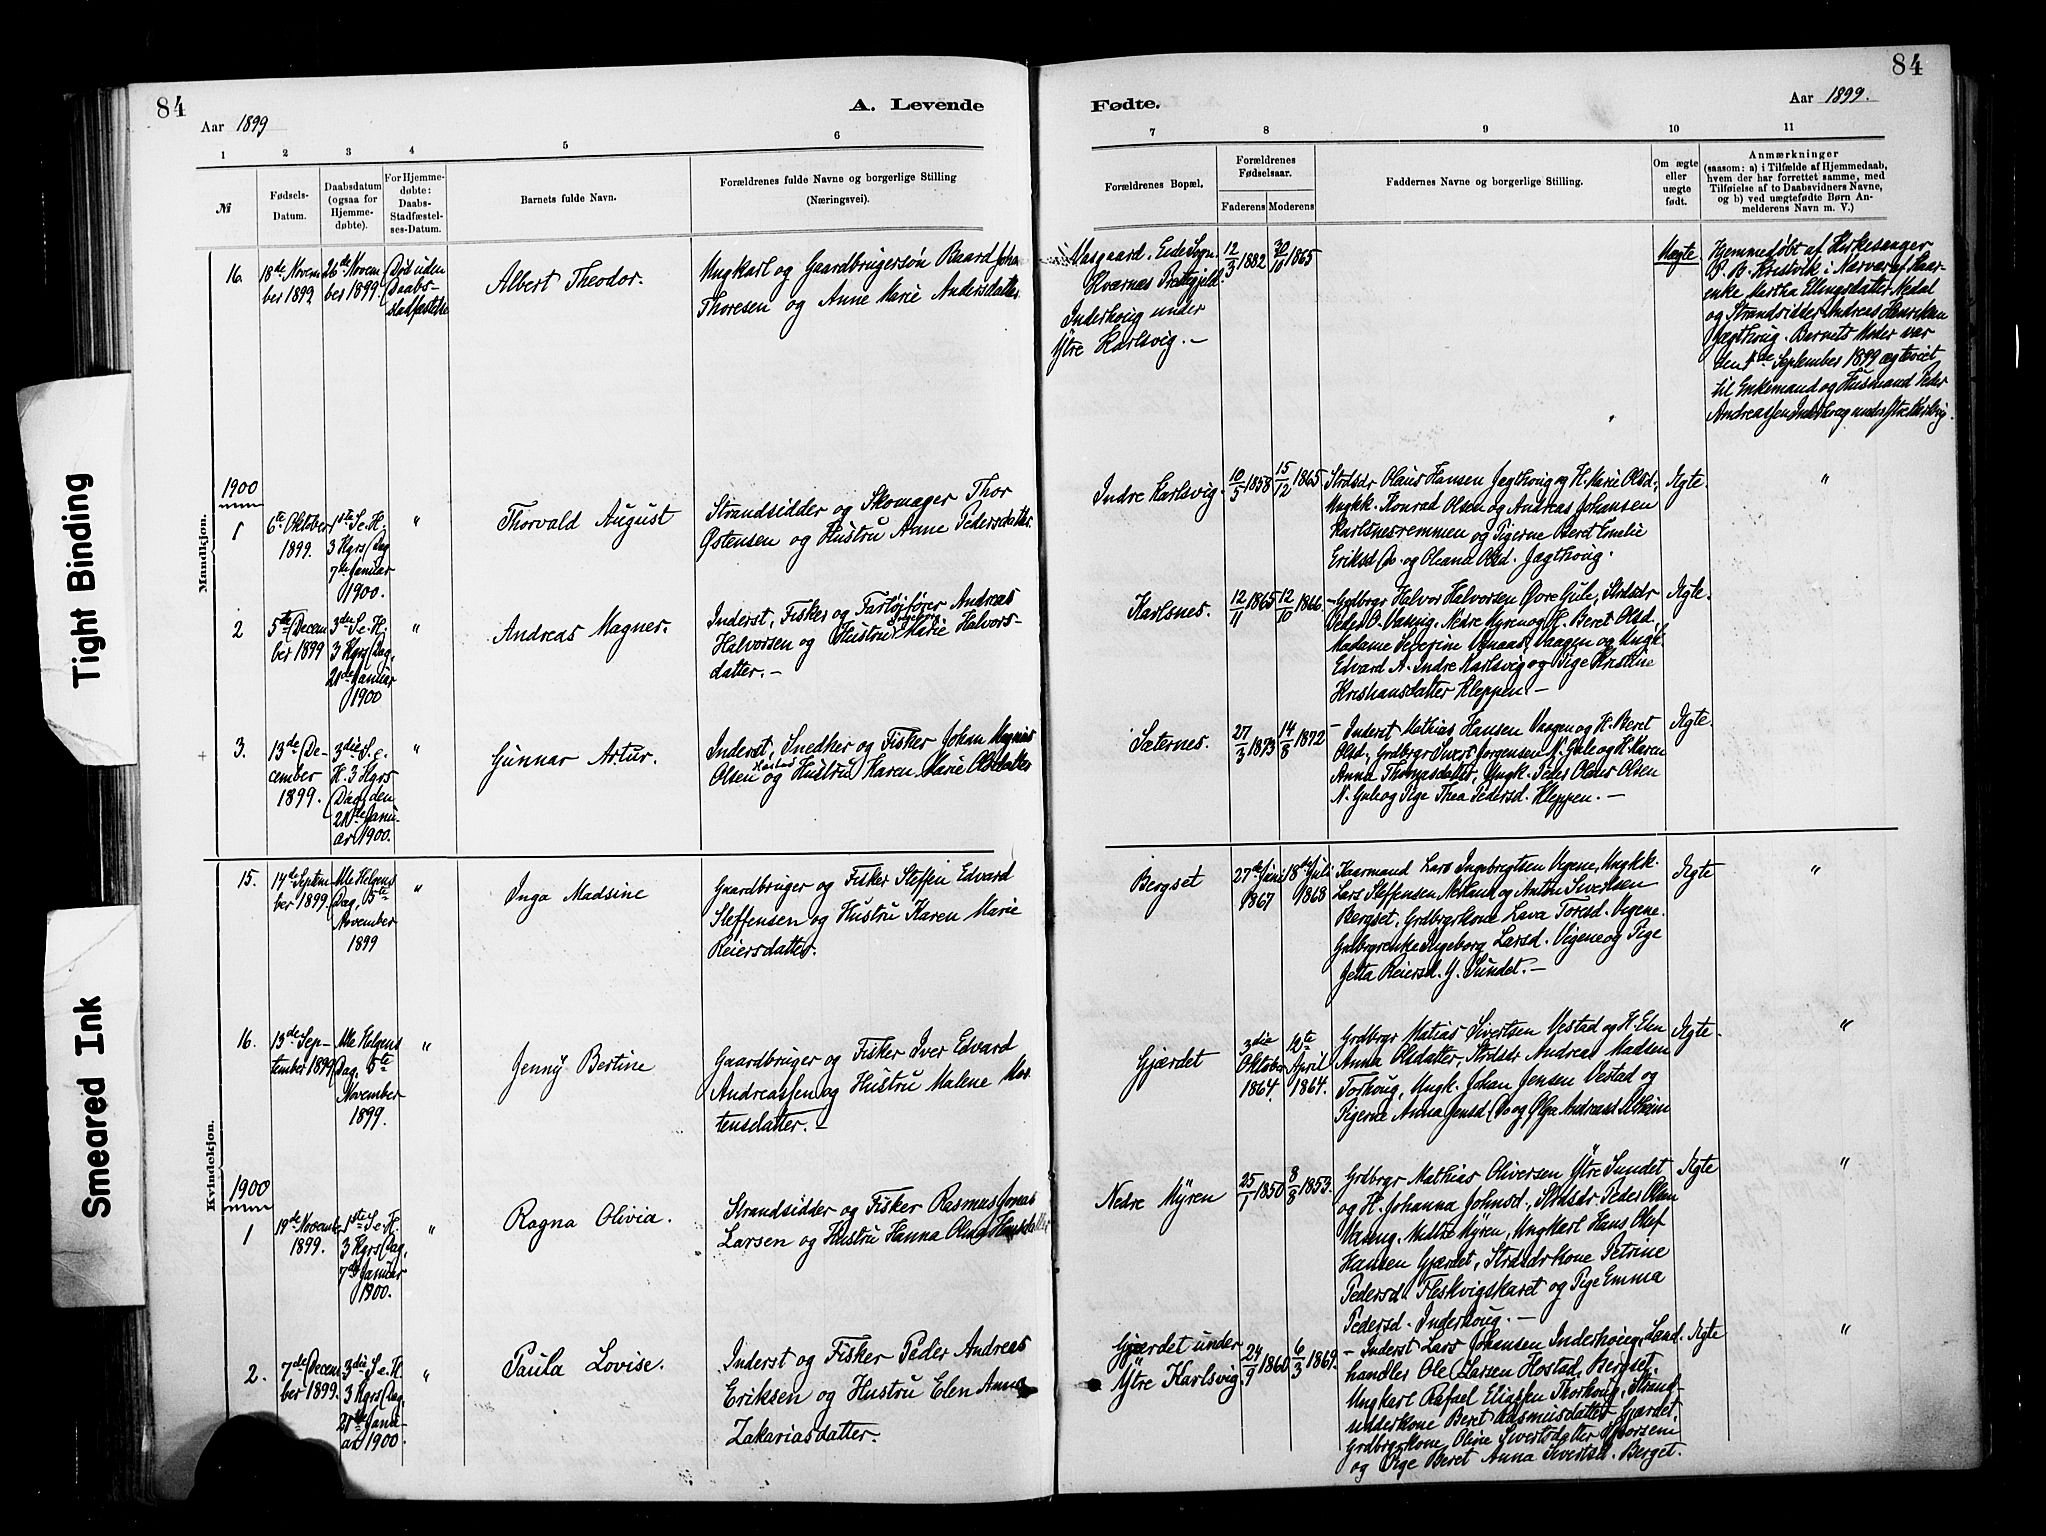 84
Aar 1899
A. Levende
1
2
3
4
5
6
№
Fødsels-
Datum.
Daabsdatum
(ogsaa for
Hjemme-
døbte).
For Hjemme-
døbte:
Daabs-
Stadfæstel-
ses-Datum.
Barnets fulde Navn.
Forældrenes fulde Navne og borgerlige Stilling
(Næringsvei).
Mandkjøn.
16.
18de Novem
ber 1899
26de Novem
ber 1899.
Død uden
Daabs-
stadfæstelse
Albert Theodor.
Ungkarl og Gaardbrugersøn Baard Joha
Thoresen og Anne Marie Andersdatter
1900
1
6te Oktober
1899.
1ste S. e. H.
3 Kgrs Dag
7de Januar
1900.
"
Thorvald August
Strandsidder og Skomager Thor
Østensen og Hustru Anne Pedersdatter
2
5te Decem
ber 1899
3die S. e. H.
3 Kgrs Dag,
21de Januar
1900
"
Andreas Magner.
Inderst, Fisker og Andreas
Halvorsen og Hustru Marie Halvors-
datter.-
3.
13de De-
cember
1899.
3die S. e.
H. 3 Kgrs
Dag den
21de Janu-
ar 1900.
"
Gunnar Artur.
Inderst, Snedker og Fisker Johan Magnus
Olsen og Hustru Karen Marie Olsdatter
Kvindekjøn.
15.
14de Septem-
ber 1899
Alle Helgens
Dag. 5te
November
1899
"
Inga Madsine
Gaardbruger og Fisker Steffen Edvard
Steffensen og Hustru Karen Marie
Reiersdatter.
16.
13de Sep-
tember 1899
Alle Helgens
Dag. 5te
November
1899.
"
Jenny Bertine
Gaardbruger og Fisker Iver Edvard
Andreassen og Hustru Malene Mor
tensdatter.-
1900
1
19de Novemb
1899.
1ste S. e. H.
3 Kgrs Dag,
7de Januar
1900.
"
Ragna Olivia.
Strandsidder og Fisker Rasmus Jonas
Larsen og Hustru Hanna Olina Hansdatter
2.
7de Decem
ber 1899.
3die S. e. H
3 Kgrs Dag,
21de Janu-
ar 1900.
"
Paula Lovise.
Inderst og Fisker Peder Andreas
Eriksen og Hustru Elen Anna
Zakariasdatter.
Fødte.
84
Aar 1899.
7
8
9
10
11
Forældrenes Bopæl.
Forældrenes
Fødselsaar.
Faderens
Moderens
Faddernes Navne og borgerlige Stilling.
Om ægte
eller
uægte
født.
Anmærkninger
(saasom: a) i Tilfælde af Hjemmedaab,
hvem der har forrettet samme, med
Tilføielse af to Daabsvidners Navne,
og b) ved uægtefødte Børn An-
melderens Navn m. V.)
Aasgaard, Eide Sogn,
Kværnes Prestegjeld.
Inderhoug under
Ytre Karlsvig.-
12/3 1882
30/10 1865
Uægte
Hjemmedøbt af Kirkesanger
P. B. Krestvik i Nærvær af Kaar-
enke Martha Ellingsdatter Nedal
og Strandsidder Andreas Henriksen
Jægthoug. Barnets Moder var
den de September 1899 ægteviet
til Enkemand og Husmand Peder
Andreassen Inderhoug under Ytre Karlsvig
Indre Karlsvig.
10/5 1858
15/12 1865
Strdsdr Olaus Hansen Jegthoug og H. Marie Olsd.,
Ungkk. Konrad Olsen og Andreas Johansen
Karlsnesremmen og Pigerne Beret Emilie
Eriksd Do. og Oleana Olsd. Jægthoug.
Ægte.
"
Karlsnes.
12/11 1865
12/10 1866
- Grdbrgr Halvor Halvorsen Øvre Gule, Strdsdr
Peder O. Nedre Myren og H. Beret Olsd,
Madame Severine Vaagen og Ungk.
Edvard A. Indre Karlsvig og Pige Kristine
Kristiansdatter Kleppen-
Ægte.
"
Sæternes.
27/3 1873
14/8 1872
- Inderst Mathias Hansen Vaagen og H. Beret
Olsd, Grdbrgr Sivert Jørgensen N. Gule og H. Karen
Anna Thomasdatter, Ungk. Peder Olaus Olsen
N. Gule og Pige Thea Pedersd. Kleppen.-
Ægte.
"
Bergset
27de Juni
1867
18de Juli
1868
Kaarmand Lars Ingebregtsen Vigene, Ungkk.
Lars Steffensen og Anton Sivertsen
Bergset, Grdbrgrkone Lava Toresd. Vigene.
Grdbrgrenke Ingeborg Larsd. Vigene og Pige
Jetta Reiersd. Y. Sundet.-
Ægte
"
Gjærdet
3die
Oktober
1864.
12te
April
1864.
Grdbrgr Matias Sivertsen Vestad og H. Elen
Anna Olsdatter, Strdsdr Andreas Madsen
Torhoug, Ungk. Johan Jensen Vestad og
Pigerne Anna Jensd Do og Olga Andreasd
Ægte.
"
Nedre Myren
25/1 1850
8/8 1853.
Grdbrgr Mathias Oliversen Ytre Sundet
og H. Johanna Johnsd., Strdsdr Peder Olsen
Midtre Myren, Ungkarl Hans Olaf
Hansen Gjærdet, Strdsdrkone Petrine
Pedersd. Fleskvigskaret og Pige Emma
Pedersd. Inderhoug.-
Ægte
"
Gjærdet under
Ytre Karlsvig.
24/9 1860
6/3 1869.
- Inderst Lars Johansen Inderhoug, Land-
handler Ole Larsen Hostad, Bergset.
Ungkarl Rafael Eliassen Thorhoug, Strand-
sidderkone Beret Rasmusdatter Gjærdet,
Grdbrgrkone Oline Sivertsdatter
og Pige Beret Anna Sivertsd. Berget.
Ægte
"
Tight Binding
Smeared Ink